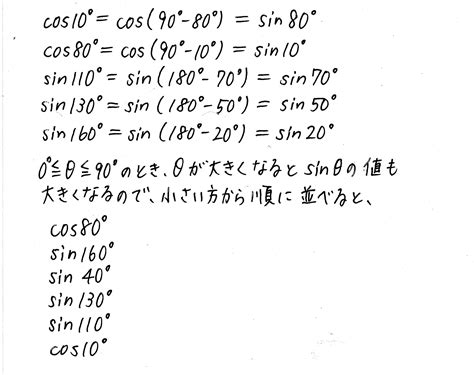 cos10°= cos(90°-80°) = sin80°
cos80°= cos(90°-10°) = sin10°
sin110°= sin(180°-70°) = sin70°
sin130°= sin(180°-50°) = sin50°
sin160°= sin(180°-20°) = sin20°
0°≦θ≦90°のとき、θが大きくなるとsinθの値も
大きくなるので、小さい方から順に並べると、
cos80°
sin160°
sin 40°
sin130°
sin110°
cos10°